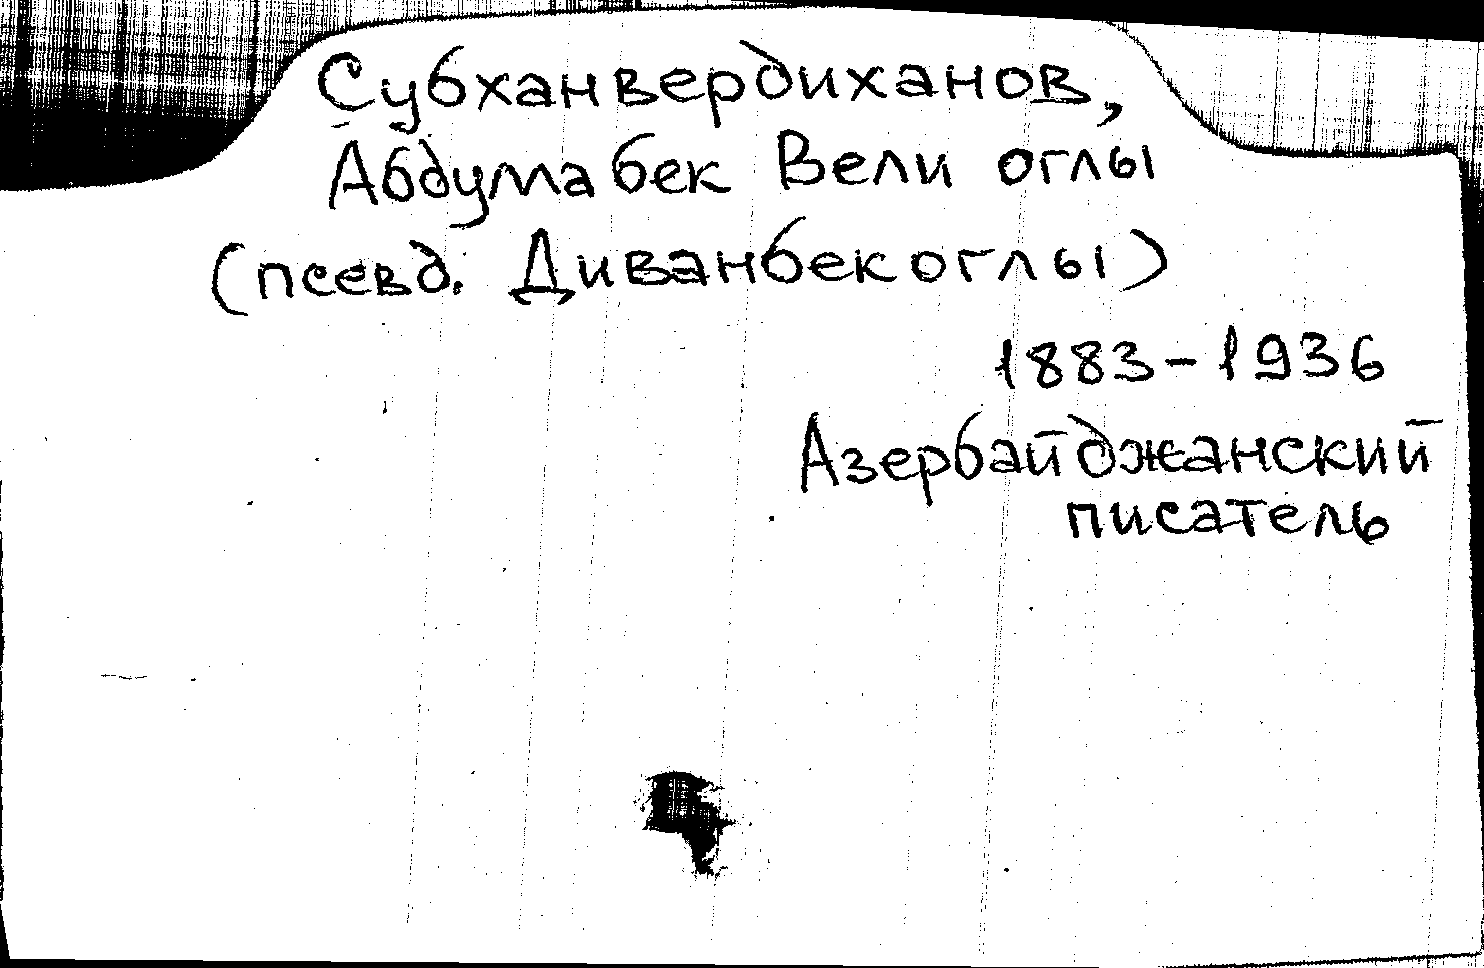 Субханвердиханов,
Абдулабек Вели оглы
(псевд. Диванбекоглы)
1883-1936
Азербайджанский
писатель